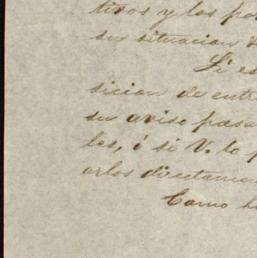 tivos y los po
su situacion
Si es
sicion de entr
su aviso pasa
les, ó si V. lo p
arlos directamen
Como h